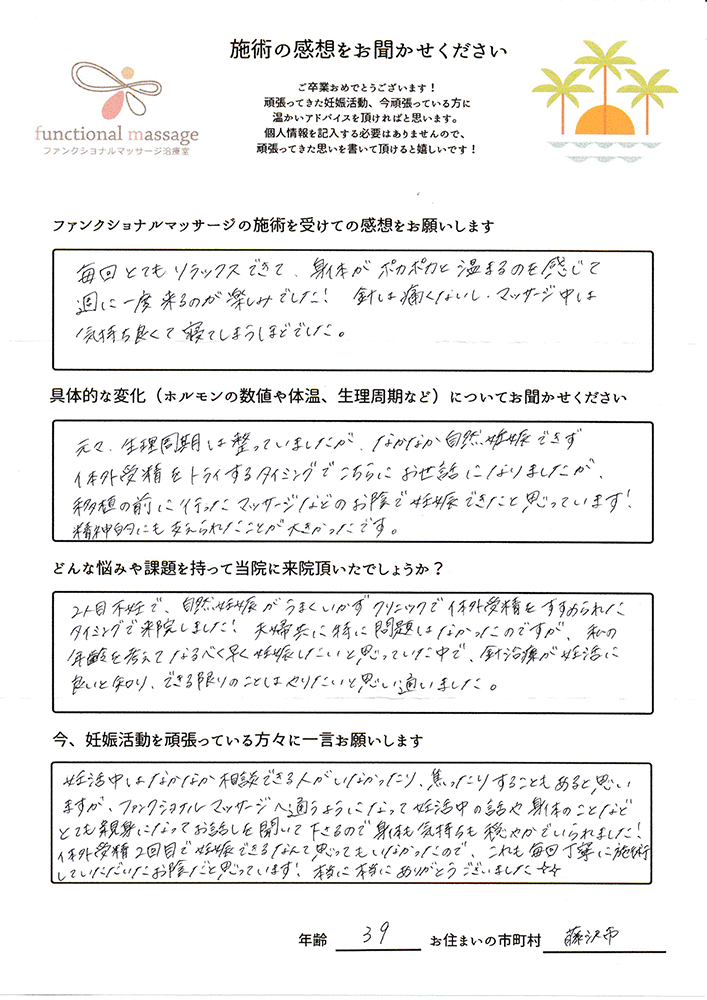 施術の感想をお聞かせください
functional massage
ファンクショナルマッサージ治療室
ご卒業おめでとうございます！
頑張ってきた妊娠活動、今頑張っている方に
温かいアドバイスを頂ければと思います。
個人情報を記入する必要はありませんので、
頑張ってきた思いを書いて頂けると嬉しいです！
ファンクショナルマッサージの施術を受けての感想をお願いします
毎回とてもリラックスできて、身体がポカポカと温まるのを感じて
週に一度来るのが楽しみでした！ 針は痛くないし、マッサージ中は
気持ち良くて寝てしまうほどでした。
具体的な変化（ホルモンの数値や体温、生理周期など）についてお聞かせください
元々、生理周期は整っていましたが、なかなか自然妊娠できず
体外受精をトライするタイミングでこちらにお世話になりましたが、
移植の前に行ったマッサージなどのお陰で妊娠できたと思っています！
精神的にも支えられたことが大きかったです。
どんな悩みや課題を持って当院に来院頂いたでしょうか？
2人目不妊で、自然妊娠がうまくいかずクリニックで体外受精をすすめられた
タイミングで来院しました！ 夫婦共に特に問題はなかったのですが、私の
年齢を考えてなるべく早く妊娠したいと思っていた中で、針治療が妊活に
良いと知り、できる限りのことはやりたいと思い通いました。
今、妊娠活動を頑張っている方々に一言お願いします
妊活中はなかなか相談できる人がいなかったり、焦ったりすることもあると思い
ますが、ファンクショナルマッサージへ通うようになって妊活中の話や身体のことなど
とても親身になってお話しを聞いて下さるので身体も気持ちも穏やかでいられました！
体外受精2回目で妊娠できるなんて思ってもいなかったので、これも毎回丁寧に施術
していただいたお陰だと思っています！ 本当に本当にありがとうございました☆☆
年齢 39 お住まいの市町村 藤沢市